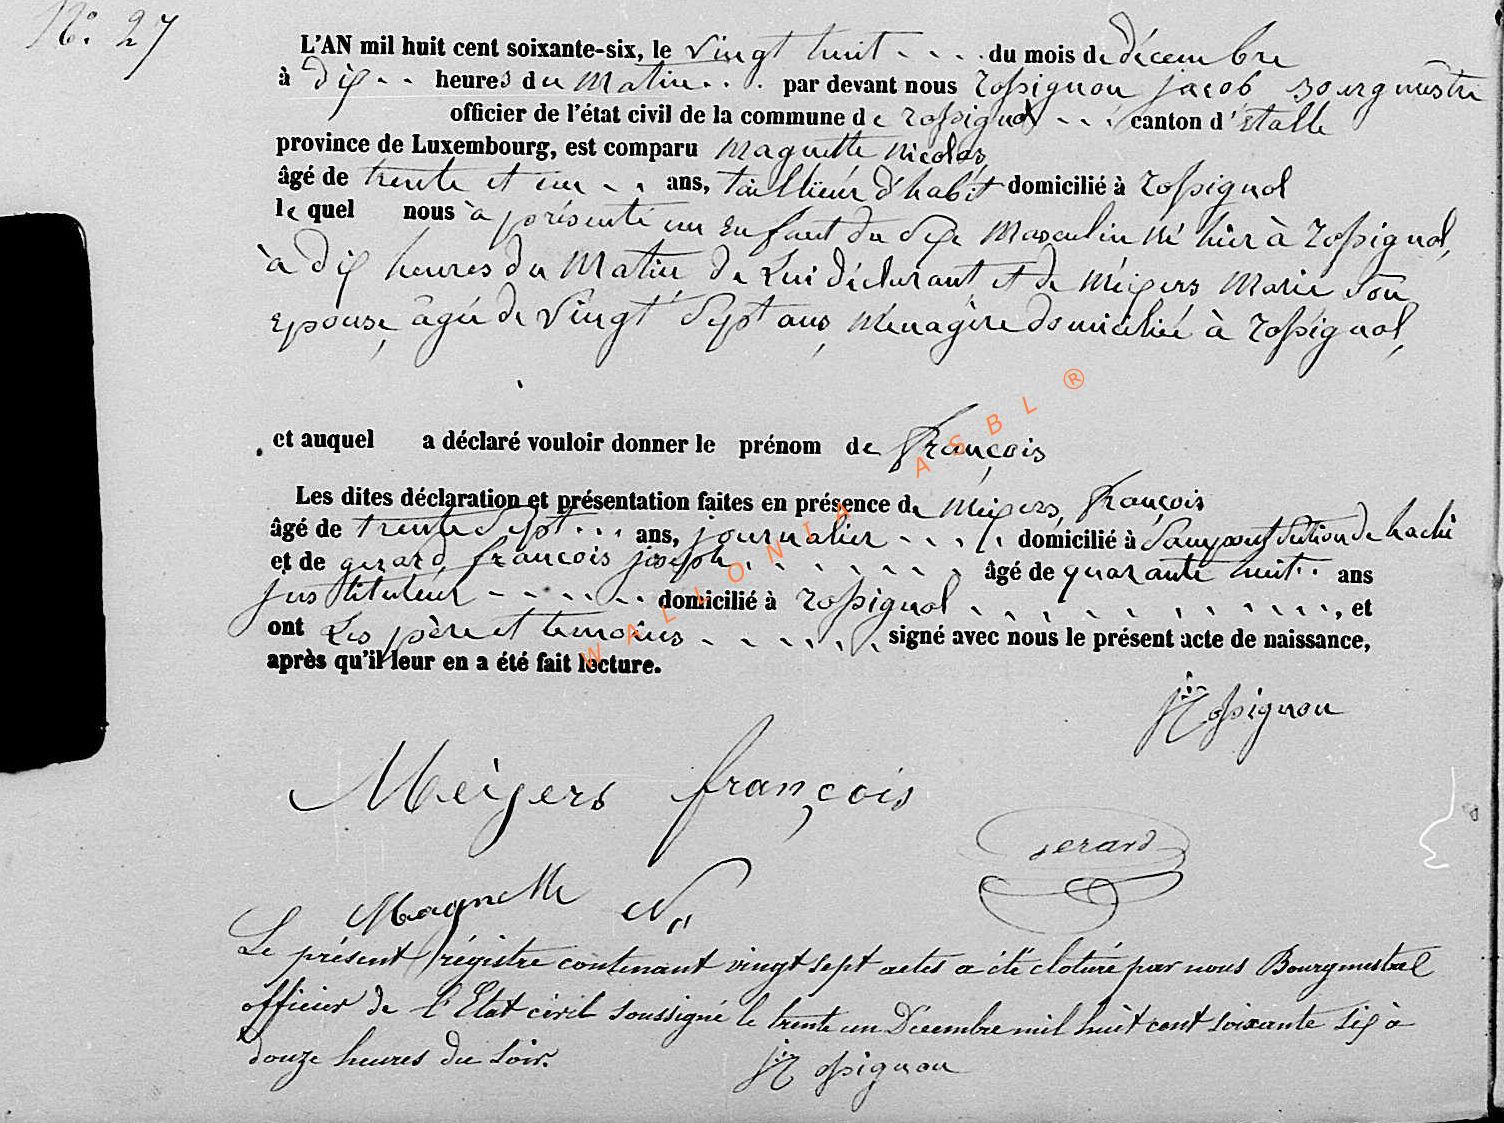 N° 27
L'AN mil huit cent soixante-six, le vingt huit du mois de décembre
à dix heures du Matin par devant nous Rossignon jacob Bourgmestre
officier de l'état civil de la commune de rossignol canton d'étalle
province de Luxembourg, est comparu Magnette Nicolas,
âgé de trente et un ans, tailleur d'habit domicilié à rossignol
le quel nous à présenté un Enfant du Sexe Masculin né hier à rossignol,
à dix heures du Matin, de Lui déclarant et de Meijers Marie Son
Epouse, âgée de vingt Sept ans, Ménagère domiciliée à rossignol,
et auquel a déclaré vouloir donner le prénom de François
Les dites déclaration et présentation faites en présence de Meijers, François
âgé de trente Sept ans, journalier domicilié à Sampont Section de hachi
et de gerard, françois joseph âgé de quarante huit ans
justituteur domicilié à rossignol, et
ont Les père et temoins signé avec nous le présent acte de naissance,
après qu'il leur en a été fait lecture.
Rossignon
Meijers françois
gerard
Magnette N
Le présent régistre contenant vingt sept actes a été cloturé par nous Bourgmestre
officier de l'Etat civil soussigné le trente un Décembre mil huit cent soixante six à
douze heures du soir.
Rossignon
WALLONIA ASBL ®